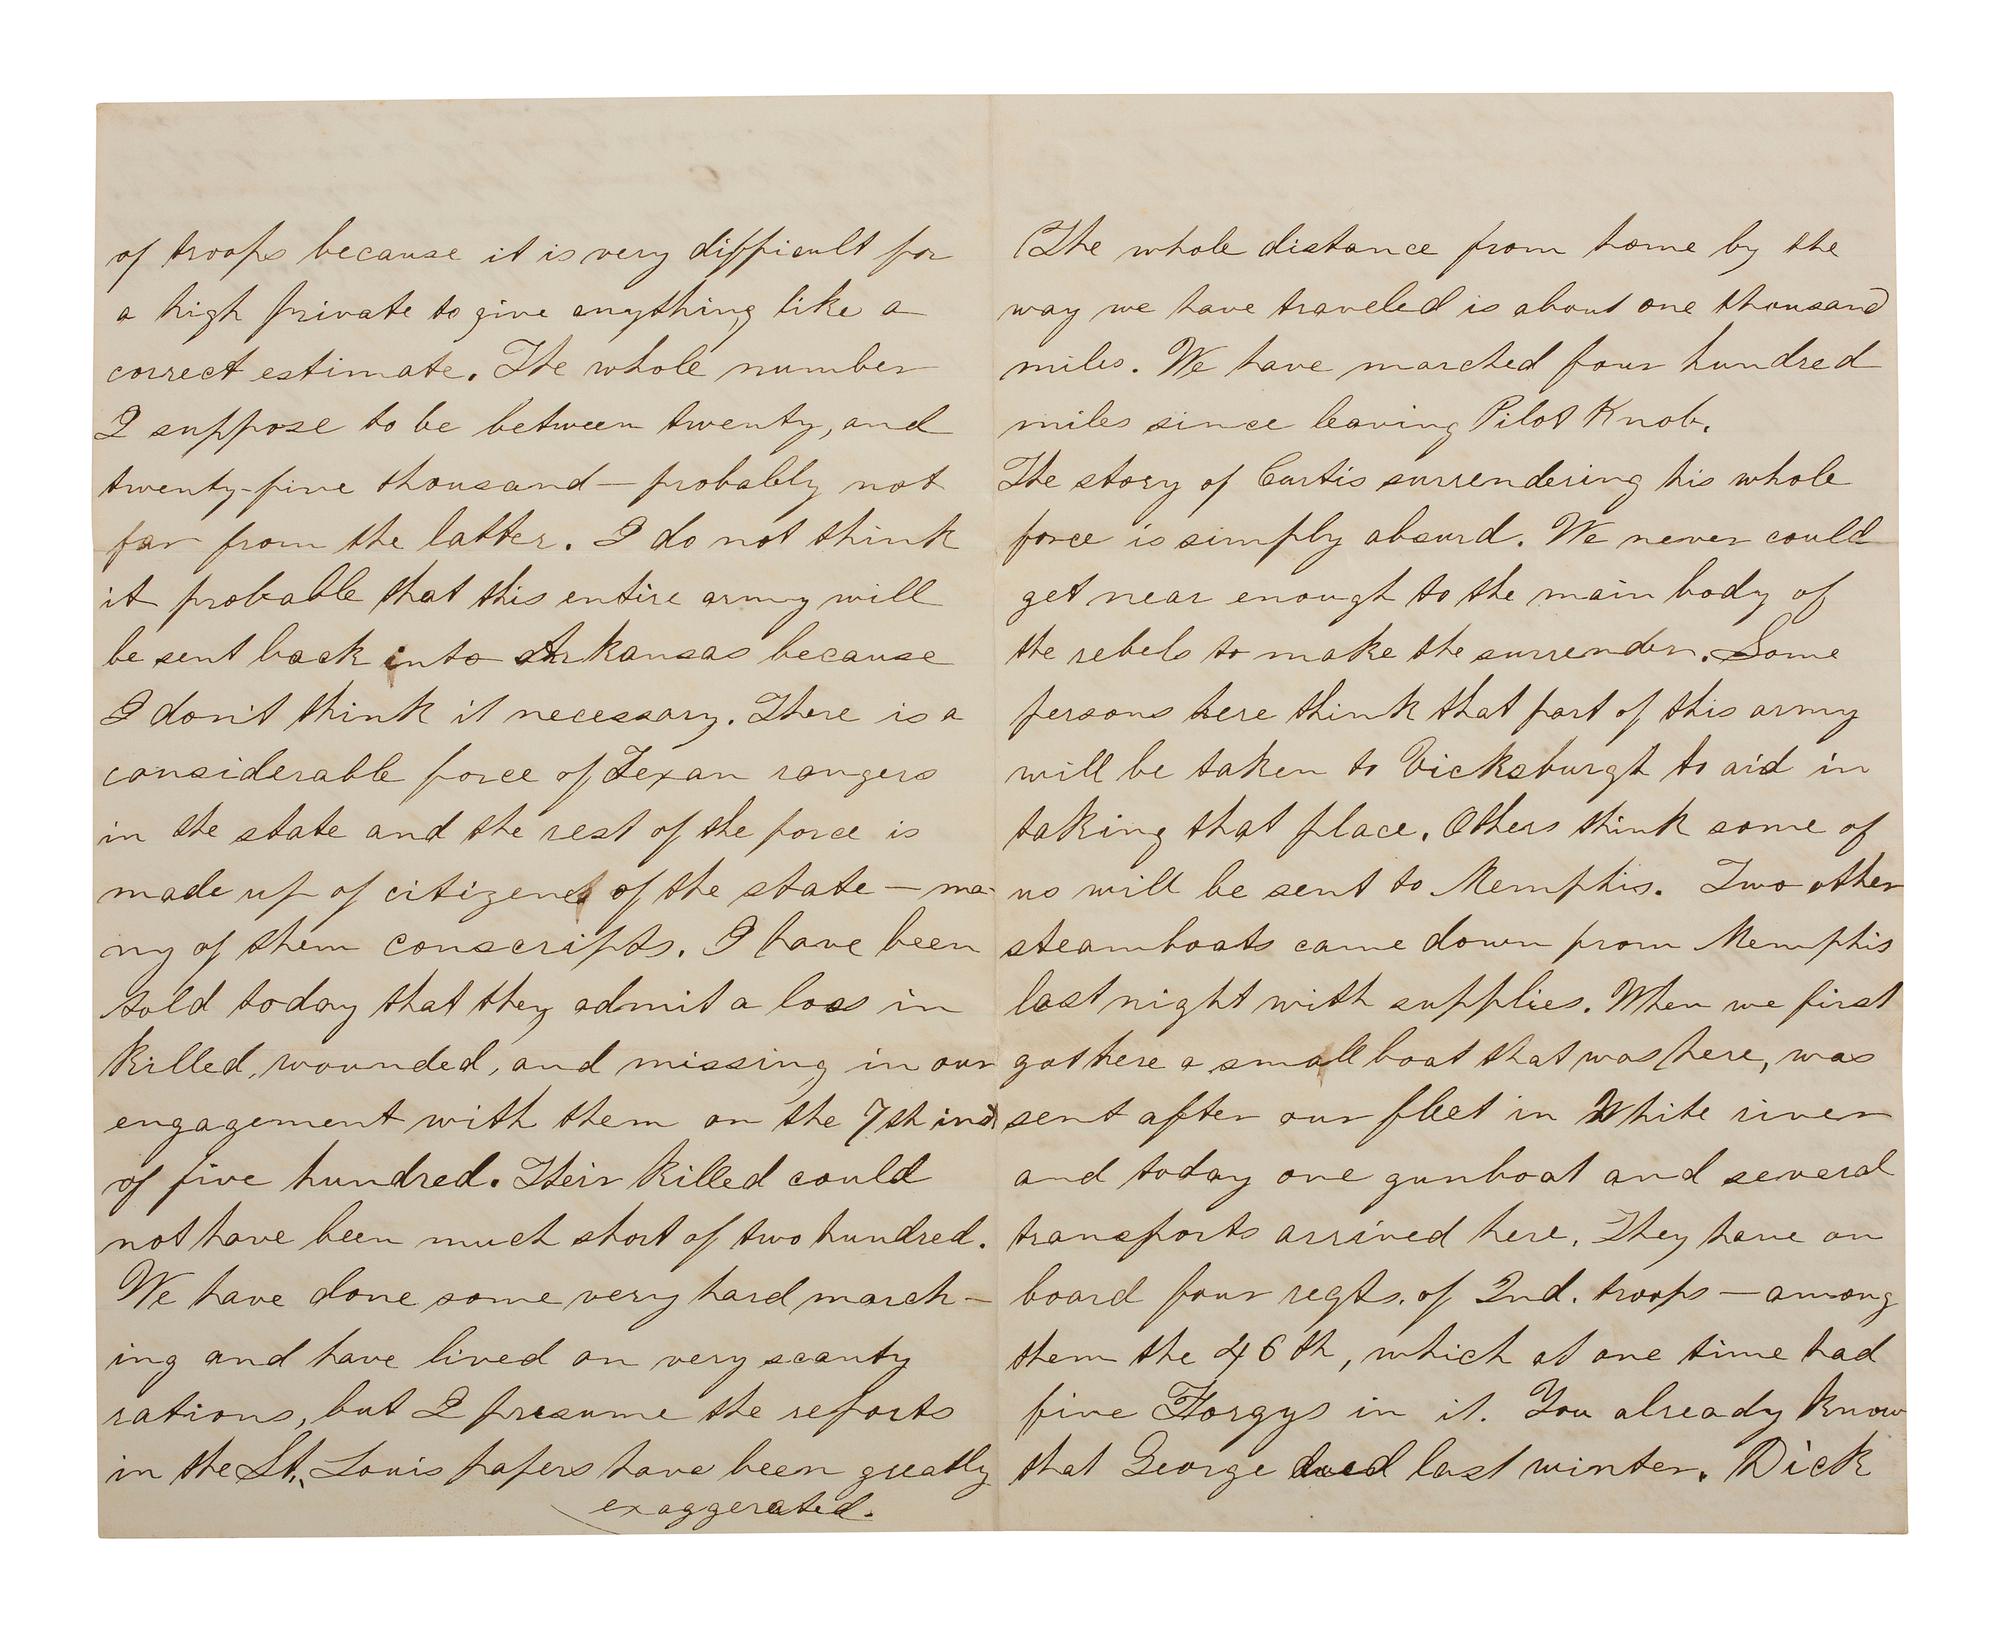 of troops because it is very difficult for
a high private to give anything like a
correct estimate. The whole number
I suppose to be between twenty, and
twenty-five thousand — probably not
far from the latter. I do not think
it probable that this entire army will
be sent back into Arkansas because
I don't think it necessary. There is a
considerable force of Texan rangers
in the state and the rest of the force is
made up of citizens of the state — ma-
ny of them conscripts. I have been
told today that they admit a loss in
killed, wounded, and missing in our
engagement with them on the 7th inst
of five hundred. Their killed could
not have been much short of two hundred.
We have done some very hard march-
ing and have lived on very scanty
rations, but I presume the reports
in the St. Louis papers have been greatly
exaggerated.
The whole distance from home by the
way we have traveled is about one thousand
miles. We have marched four hundred
miles since leaving Pilot Knob.
The story of Curtis surrendering his whole
force is simply absurd. We never could
get near enough to the main body of
the rebels to make the surrender. Some
persons here think that part of this army
will be taken to Vicksburgh to aid in
taking that place. Others think some of
us will be sent to Memphis. Two other
steamboats came down from Memphis
last night with supplies. When we first
got here a small boat that was here, was
sent after our fleet in White river
and today one gunboat and several
transports arrived here. They have on
board four regts. of Ind. troops — among
them the 46th, which at one time had
five Forgys in it. You already know
that George died last winter. Dick